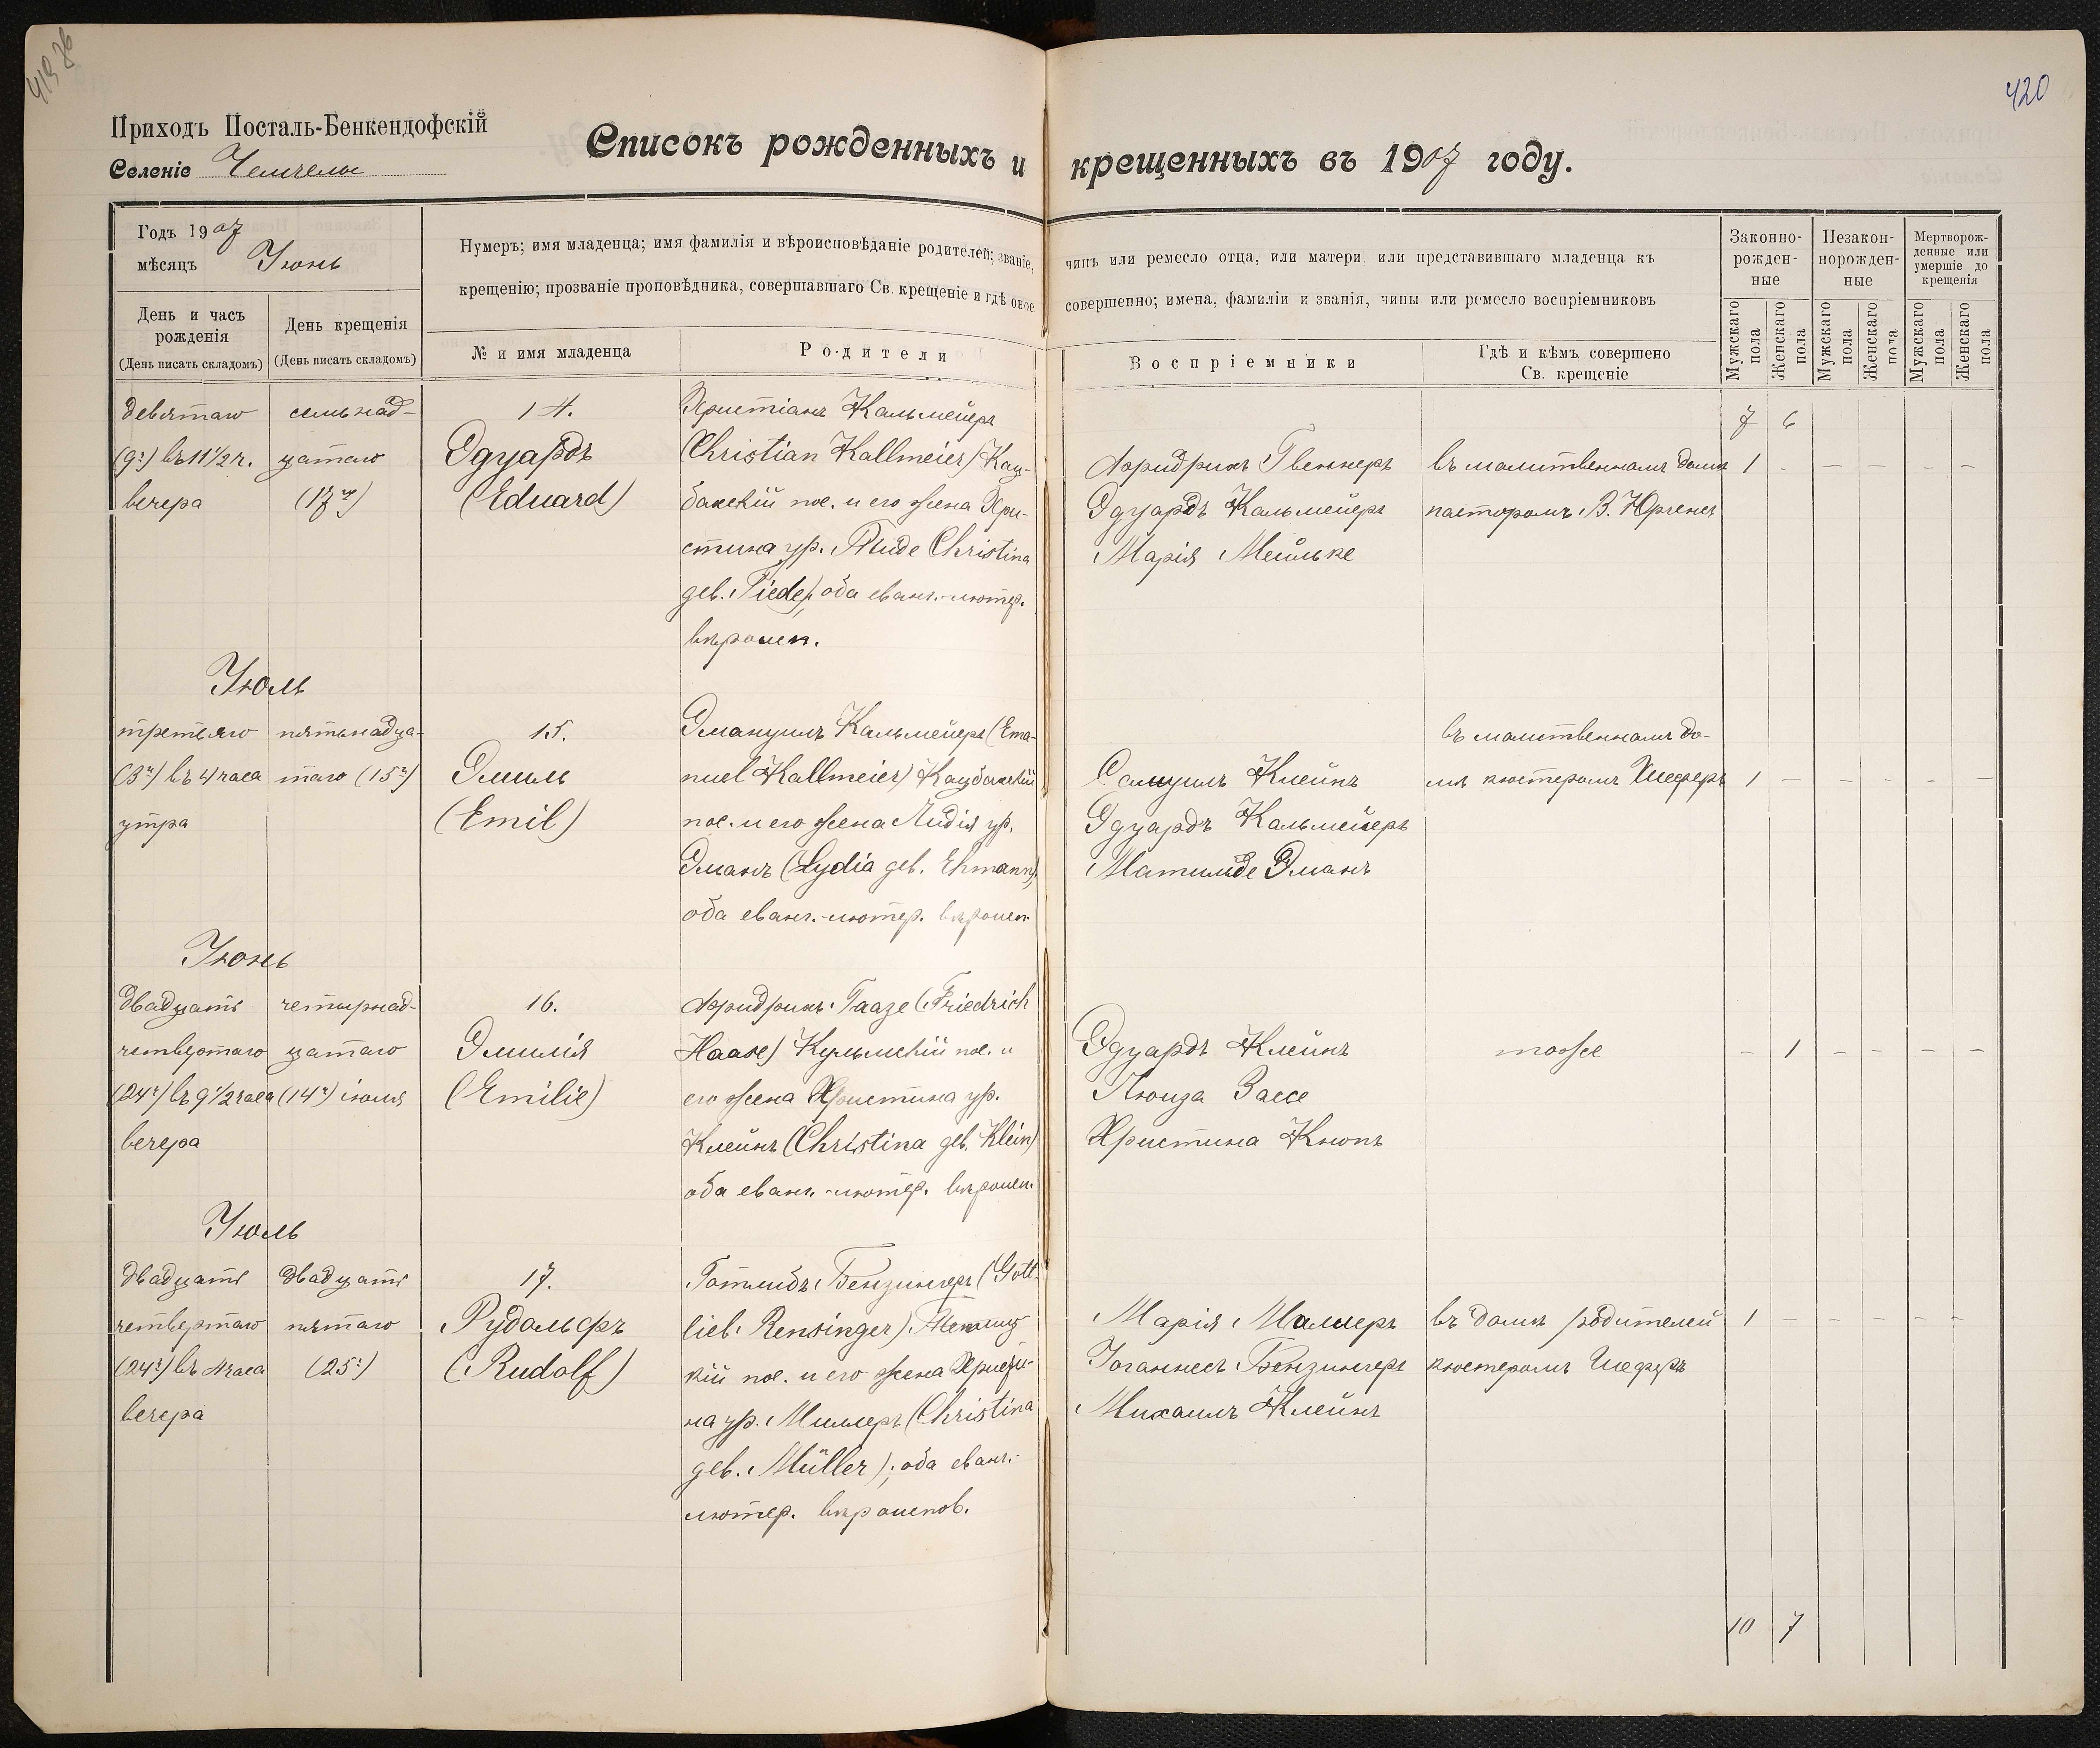 419 об
420
Приходъ Посталь-Бенкендофскій
Селеніе Чемчелы
Списокъ рожденныхъ и крещенныхъ въ 1907 году.
Годъ 1907
мѣсяцъ Іюнь
День и часъ рожденія
(День писать складомъ)
День крещенія
(День писать складомъ)
Нумеръ; имя младенца; имя фамилія и вѣроисповѣданіе родителей; званіе, чинъ или ремесло отца, или матери или представившаго младенца къ
крещенію; прозваніе проповѣдника, совершавшаго Св. крещеніе и гдѣ овое совершенно; имена, фамиліи и званія, чины или ремесло воспріемниковъ
№ и имя младенца
Родители
Воспріемники
Гдѣ и кѣмъ совершено
Св. крещеніе
Законно-
рожден-
ные
Незакон-
норожден-
ные
Мертворож-
денные или
умершіе до
крещенія
Мужскаго пола
Женскаго пола
Мужскаго пола
Женскаго пола
Мужскаго пола
Женскаго пола
7 6
девятаго
(9го) въ 11 1/2 ч.
вечера
семьнад-
цатаго
(17го)
14.
Эдуардъ
(Eduard)
Христіанъ Кальмейеръ
(Christian Kallmeier) Кау-
бакскій пос. и его жена Хри-
стина ур. Тиде (Christina
geb. Tiede), оба еванг.-лютер.
вѣроисп.
Фридрихъ Гвеннеръ
Эдуардъ Кальмейеръ
Марія Мейльке
въ молитвенномъ домѣ
пасторомъ В. Юргенсъ
1 - - - - -
Іюль
третьяго
(3го) въ 4 часа
утра
пятьнадца-
таго (15го)
15.
Эмиль
(Emil)
Эмануилъ Кальмейеръ (Ema-
nuel Kallmeier) Каубакскій
пос. и его жена Лидія ур.
Эманъ (Lydia geb. Ehmann),
оба еванг.-лютер. вѣроисп.
Самуилъ Клейнъ
Эдуардъ Кальмейеръ
Матильде Эманъ
въ молитвенномъ до-
мѣ кюстеромъ Шеферъ
1 - - - - -
Іюнь
двадцать
четвертаго
(24го) въ 9 1/2 часа
вечера
четырнад-
цатаго
(14го) іюля
16.
Эмилія
(Emilie)
Фридрихъ Гаазе (Friedrich
Haase) Кульмскій пос. и
его жена Христина ур.
Клейнъ (Christina geb. Klein)
оба еванг.-лютер. вѣроисп.
Эдуардъ Клейнъ
Луиза Зассе
Христина Кнопъ
тоже
- 1 - - - -
Іюль
двадцать
четвертаго
(24го) въ 4 часа
вечера
двадцать
пятаго
(25го)
17.
Рудольфъ
(Rudolf)
Готлибъ Бензингеръ (Gott-
lieb Bensinger)
кій пос. и его жена Христи-
на ур. Миллеръ (Christina
geb. Müller); оба еванг.-
лютер. вѣроиспов.
Марія Миллеръ
Іоганнесъ Бензингеръ
Михаилъ Клейнъ
въ домѣ родителей
кюстеромъ Шеферъ
1 - - - - -
10 7